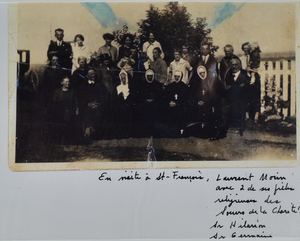 En visite à St-François, Laurent Morin
avec 2 de ses filles
religieuses des
Soeurs de la Charité
Sr Hilarion
Sr Germaine